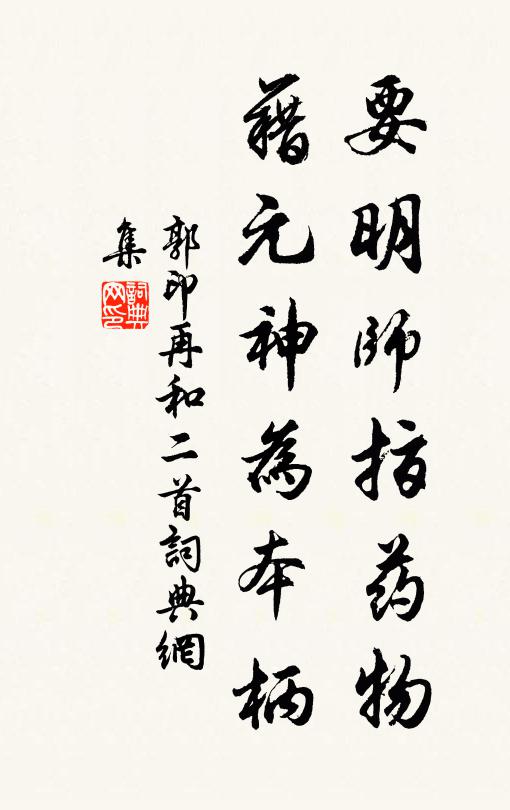 要明師指药物
藉元神為本柄
郭印再和二首詞典網
集
詞典
网印